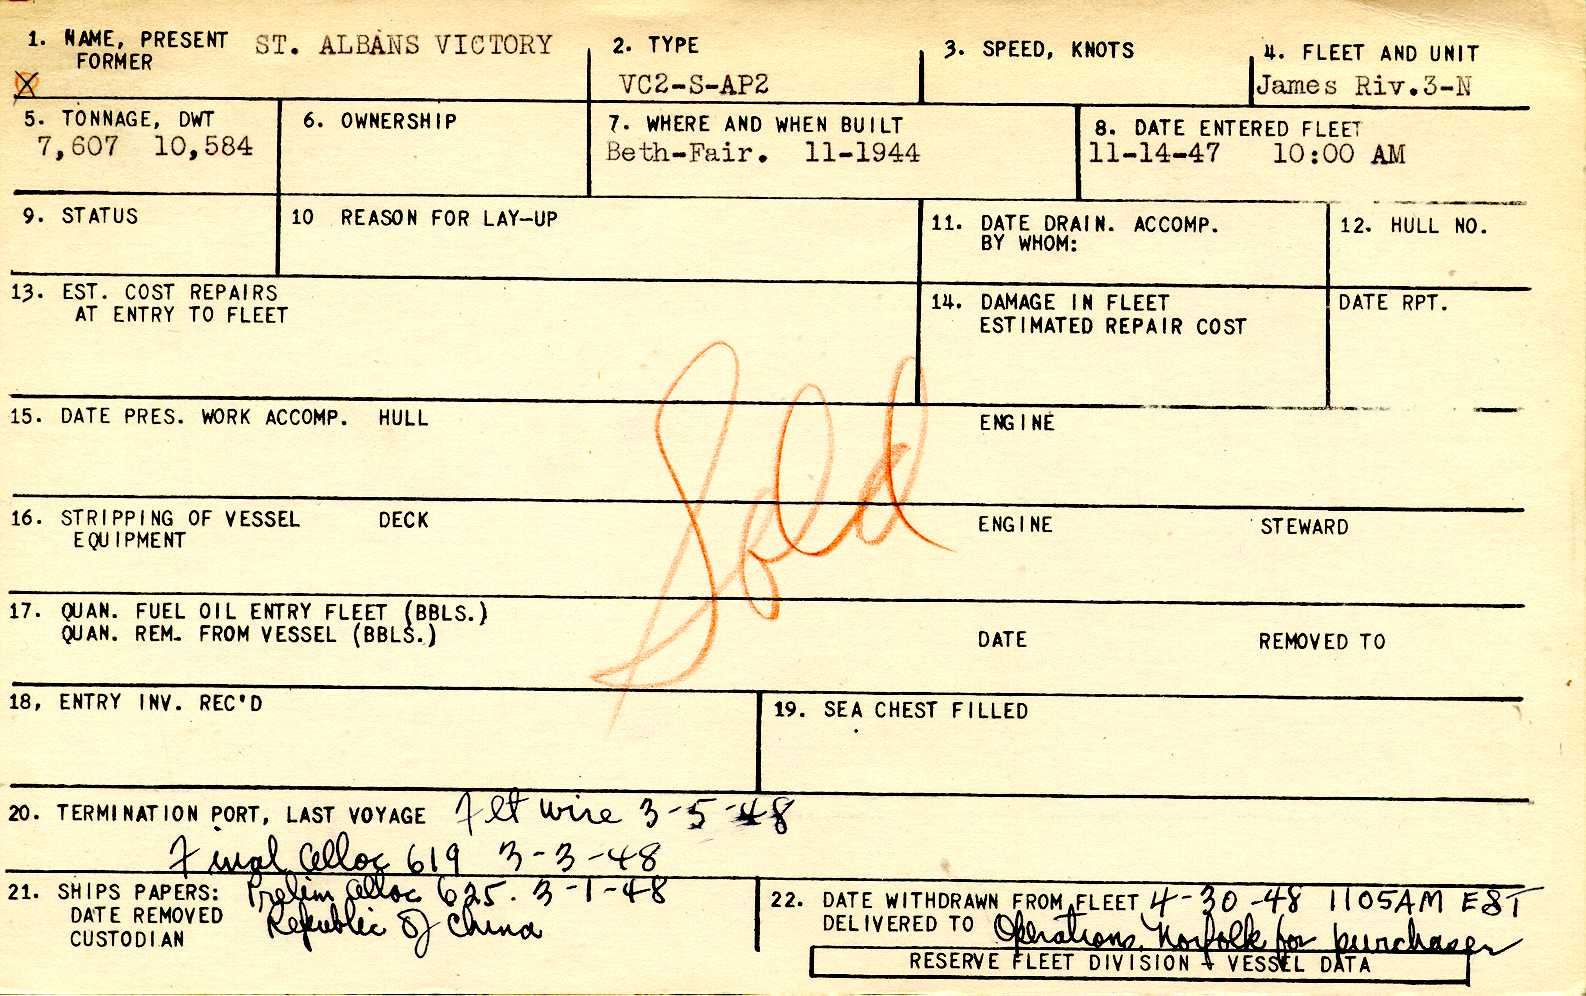 1. NAME, PRESENT ST. ALBANS VICTORY
FORMER
X
2. TYPE
VC2-S-AP2
3. SPEED, KNOTS
4. FLEET AND UNIT
James Riv.3-N
5. TONNAGE, DWT
7,607 10,584
6. OWNERSHIP
7. WHERE AND WHEN BUILT
Beth-Fair. 11-1944
8. DATE ENTERED FLEET
11-14-47 10:00 AM
9. STATUS
10 REASON FOR LAY-UP
11. DATE DRAIN. ACCOMP.
BY WHOM:
12. HULL NO.
13. EST. COST REPAIRS
AT ENTRY TO FLEET
14. DAMAGE IN FLEET
ESTIMATED REPAIR COST
DATE RPT.
Sold
15. DATE PRES. WORK ACCOMP. HULL ENGINE
16. STRIPPING OF VESSEL DECK ENGINE STEWARD
EQUIPMENT
17. QUAN. FUEL OIL ENTRY FLEET (BBLS.)
QUAN. REM. FROM VESSEL (BBLS.) DATE REMOVED TO
18, ENTRY INV. REC'D
19. SEA CHEST FILLED
20. TERMINATION PORT, LAST VOYAGE Flt wire 3-5-48
Final alloc 619 3-3-48
21. SHIPS PAPERS: Prelim alloc 625. 3-1-48
DATE REMOVED Republic of China
CUSTODIAN
22. DATE WITHDRAWN FROM FLEET 4-30-48 1105AM EST
DELIVERED TO Operations, Norfolk for purchaser
RESERVE FLEET DIVISION - VESSEL DATA